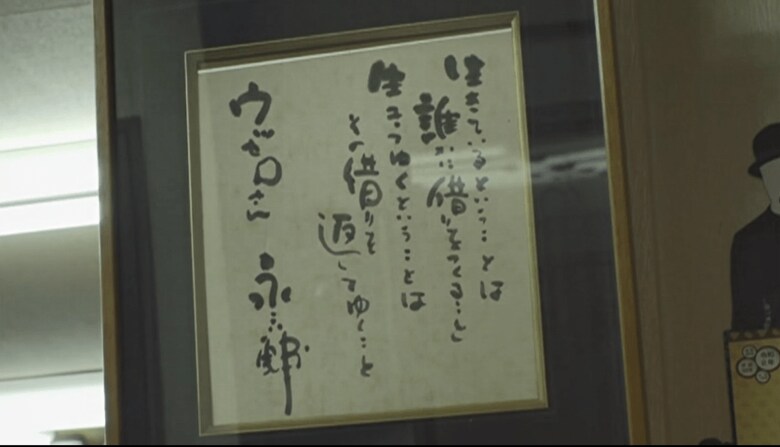 生きているということは
誰かに借りをつくること
生きてゆくということは
その借りを
返してゆくこと
ウゼロさん 永六輔